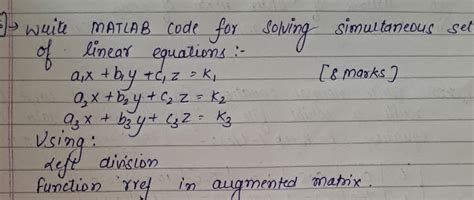 → write MATLAB code for solving simultaneous set
of linear equations :-
a₁x + b₁y + c₁ z = K₁ [8 marks]
a₂x + b₂y + c₂ z = K₂
a₃x + b₃y + c₃z = K₃
Using :
Left division
function rref in augmented matrix.